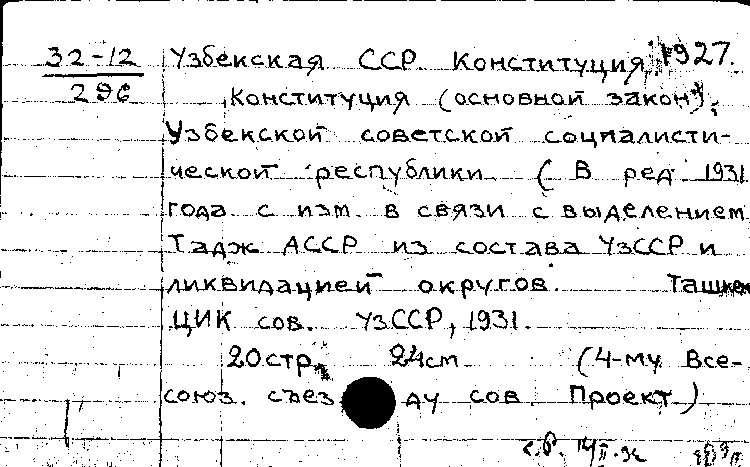 32-12 Узбекская ССР. Конституция, 1927.
296 Конституция (основной закон)
Узбекской советской социалисти-
ческой республики (В ред 1931
года с изм. в связи с выделением
Тадж АССР из состава УзССР и
ликвидацией округов. Ташкен
ЦИК сов. УзССР, 1931.
20стр. 24см (4-му Все-
союз. съезду сов. Проект)